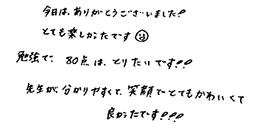 今日は、ありがとうございました!
とても楽しかったです
勉強で、80点は、とりたいです!!
先生が、分かりやすくて、笑顔でとてもかわいくて
良かったです!!!